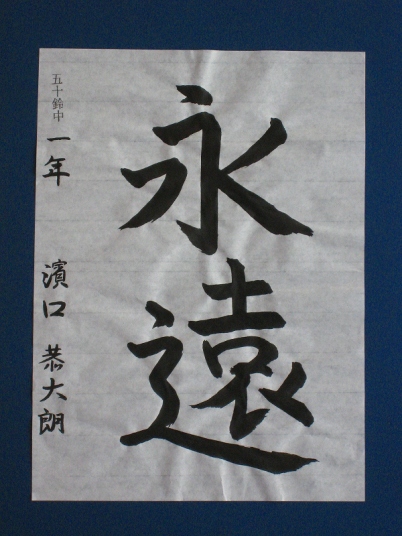 永遠
五十鈴中 一年 濱口 恭大朗